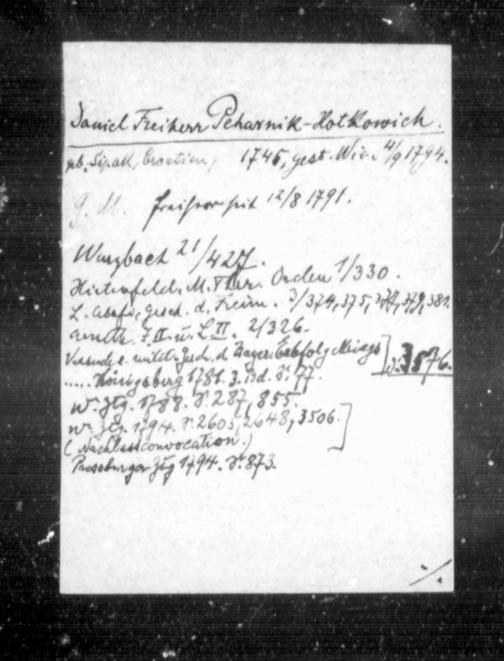 Daniel Freiherr Peharnik-Hotkowich.
geb. Sipak, Croatien, 1745, gest. Wien 4/9 1794.
G. M. Freiherr seit 12/8 1791.
Wurzbach 21/427.
Hirtenfeld, M. Ther. Orden 1/330.
L. gesch. d. Freim. 3/374, 375, 377, 379, 381.
Arneth. J. II. u. L. II. 2/326.
Versuch e. milit. Gesch. d. Bayer. Erbfolgekriegs
..... Königsberg 1781. 3. Bd. S. 77. 3576.
W. Ztg. 1788. S. 287, 855.
W. Ztg. 1794. S. 2605, 2648, 3506.
(Nachlassconvocation.)
Pressburger Ztg 1794. S. 873.
/.